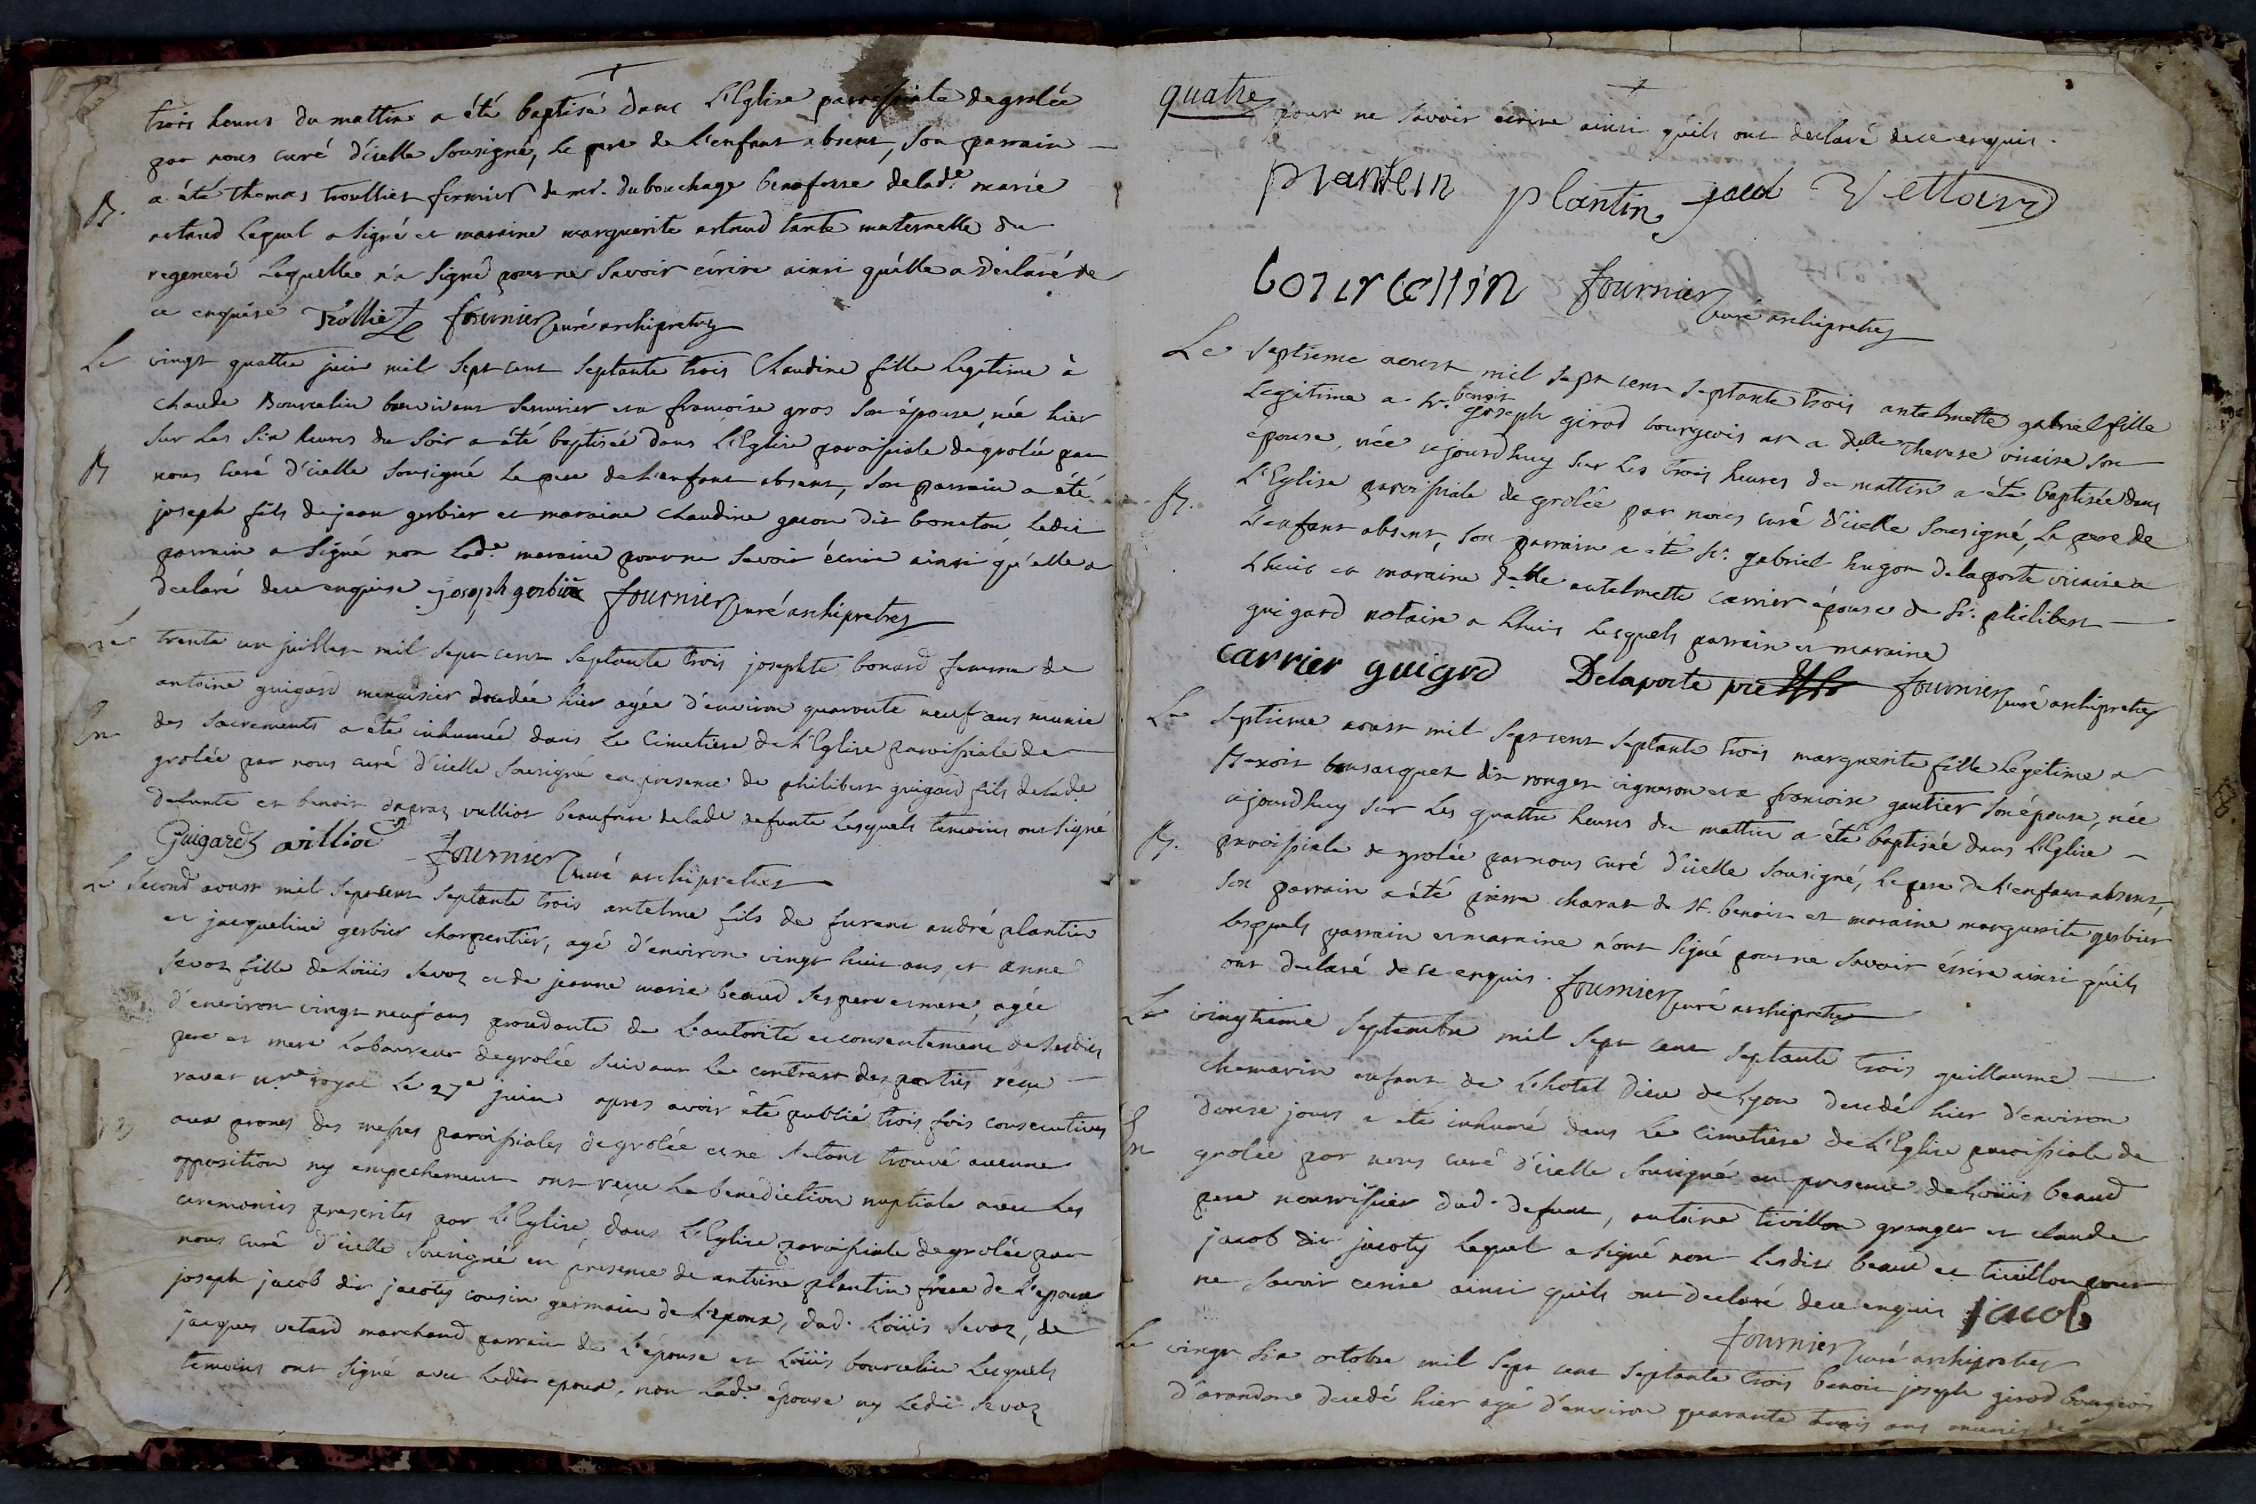 trois heures du mattin a été baptisé dans L'Eglise paroissiale de grolée
par nous curé d'icelle sousigné, le pere de l'enfant absent, son parrain
B. a été thomas troulliet fermier de mr. dubouchage beaufrere de lade. marie
artaud lequel a signé et maraine marguerite artaud tante maternelle du
regeneré laquelle n'a signé pour ne savoir écrire ainsi qu'elle a déclaré de
ce enquise Trolliet fournier curé archipretre
Le vingt quattre juin mil sept cent septante trois Claudine fille legitime à
claude Bourcelin et a francoise gros son épouse, née hier
sur les six heures du soir a été baptisée dans L'Eglise paroissiale de grolée par
B nous curé d'icelle sousigné le pere de l'enfant absent, son parrain a été
joseph fils de jean gerbier et maraine claudine gacon dit boneton ledit
parrain a signé non lade. maraine pour ne savoir écrire ainsi qu'elle a
declaré de ce enquise joseph gerbier fournier curé archipretre
Le trente un juillet mil sept cent septante trois josephte bonard femme de
antoine guigard menuisier décédée hier agée d'environ quarante neuf ans munie
En des sacrements a été inhumée dans le cimetiere de L'Eglise paroissiale de
grolée par nous curé d'icelle sousigné en presence de philibert guigard fils de lade
defunte et benoit vulliot beaufrere de lade defunte lesquels temoins ont signé
Guigard villiod fournier curé archipretre
Le second aoust mil sept cent septante trois antelme fils de furent andré plantin
et jacqueline gerbier charpentier, agé d'environ vingt huit ans, et anne
sevoz fille de Loüis sevoz et de jeanne marie beaud ses pere et mere, agée
d'environ vingt neuf ans procedante de l'autorité et consentement de sesdits
pere et mere laboureur de grolée suivant le contract des parties reçu
ravat nre royal le 27e juin apres avoir été publié trois fois consecutives
aux prones des messes paroissiales de grolée et ne s'etant trouvé aucune
opposition ny empechement ont reçu la benediction nuptiale avec les
ceremonies prescrites par L'Eglise, dans L'Eglise paroissiale de grolée par
nous curé d'icelle sousigné en presence de antoine plantin frere de l'epoux
joseph jacob dit jacoty cousin germain de l'epoux, dud. Loüis sevoz, de
jacques vetard marchand parrain de l'épouse et Loüis bourcelin lesquels
temoins ont signé avec ledit epoux, non lade. épouse ny ledit sevoz
quatre
pour ne savoir écrire ainsi qu'ils ont declaré de ce enquis.
plantein plantin jacob Vettard
bourcellin fournier curé archipretre
Le septieme aoust mil sept cent septante trois antelmette gabriel fille
benoit
legitime a sr. joseph girod bourgeois et a delle Therese vicaire son
épouse, née ajourdhuy sur les trois heures du mattin a été baptisée dans
B. L'Eglise paroissiale de grolée par nous curé d'icelle sousigné, le pere de
l'enfant absent, son parrain a été sr. gabriel hugon delaporte vicaire a
Lhuis et maraine delle antelmette carrier épouse de sr. philibert
guigard notaire a Lhuis lesquels parrain et maraine
carrier guigrd Delaporte pre fournier curé archipretre
Le septieme aoust mil sept cent septante trois marguerite fille legitime a
Benoit bonsacquet dit ronger vigneron et a francoise gautier son épouse, née
ajourdhuy sur les quattre heures du mattin a été baptisée dans L'Eglise
B. paroissiale de grolée par nous curé d'icelle sousigné, le pere de l'enfant absent,
son parrain a été pierre charat de st. benoit et maraine marguerite gerbier
lesquels parrain et maraine n'ont signé pour ne savoir écrire ainsi qu'ils
ont declaré de ce enquis. fournier curé archipretre
Le vingtieme septembre mil sept cent septante trois guillaume
chemarin enfant de L'hotel Dieu de Lyon decedé hier d'environ
douse jours a été inhumé dans le cimetiere de L'Eglise paroissiale de
En grolée par nous curé d'icelle sousigné en presence de Loüis beaud
pere nourrissier dud. defunt, antoine tivillon granger et claude
jacob dit jacoty lequel a signé non lesdits beaud et tivillon pour
ne savoir ecrire ainsi qu'ils ont declaré de ce enquis jacob
fournier curé archipretre
Le vingt six octobre mil sept cent septante trois benoit joseph girod bourgeois
d'arandon decedé hier agé d'environ quarante trois ans munis de